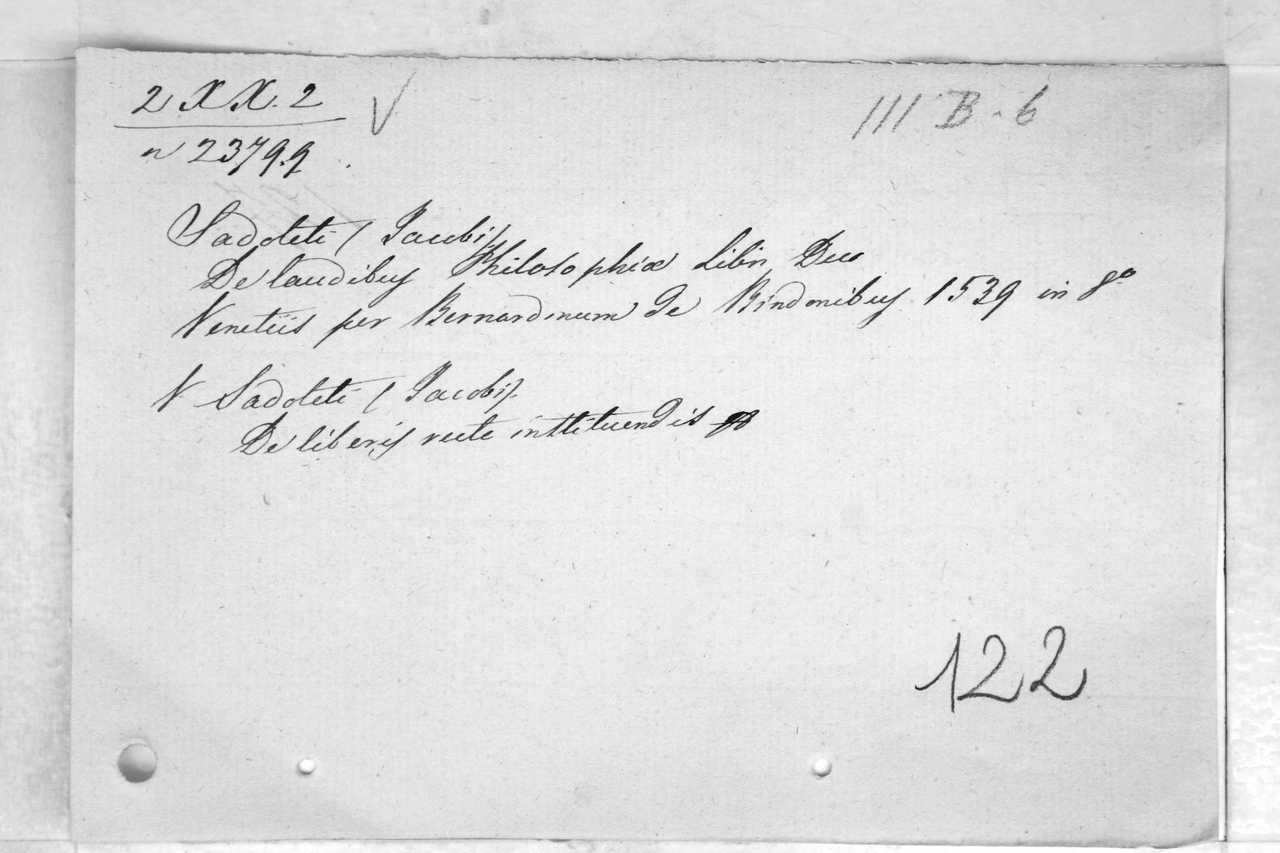 2 X X. 2 √ III B. 6
n 2379.9.
Sadoleti (Jacobi)
De laudibus Philosophiæ Libri Duo
Venetiis per Bernardinum de Bindonibus 1539 in 8°
V Sadoleti (Jacobi).
De liberis recte instituendis
122